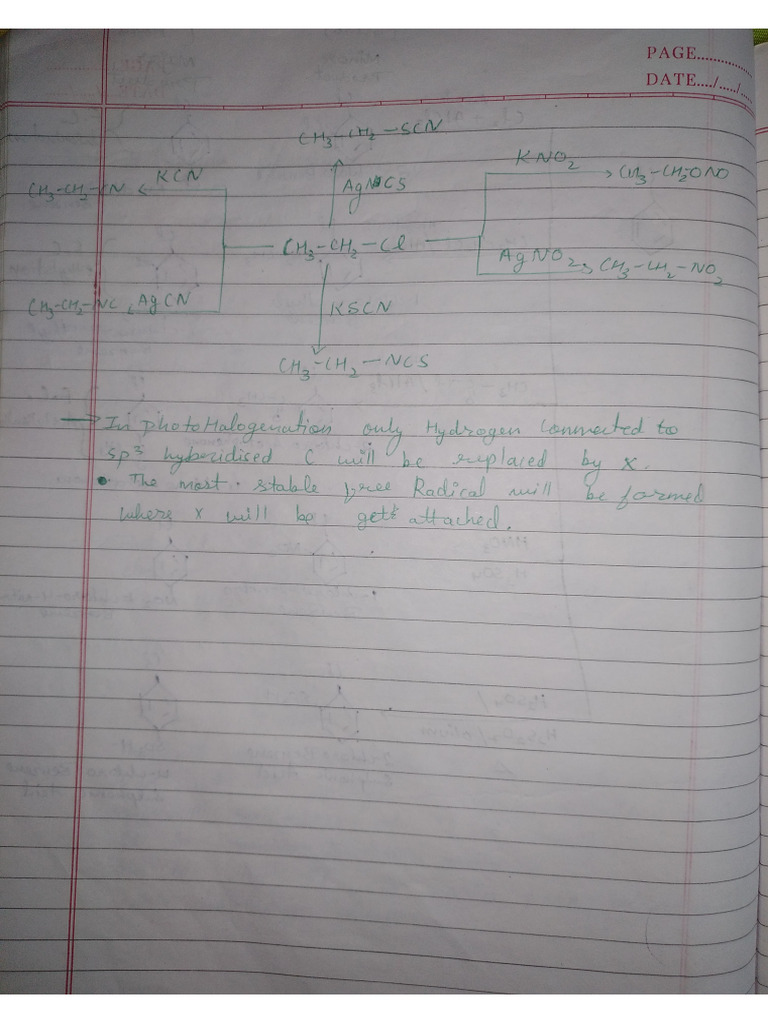 PAGE..............
DATE..../...../....
CH3-CH2-SCN
KNO2
CH3-CH2-ONO
KCN
CH3-CH2-CN
AgNCS
CH3-CH2-Cl
AgNO2
CH3-CH2-NO2
CH3-CH2-NC
AgCN
KSCN
CH3-CH2-NCS
→ In photoHalogenation only Hydrogen Connected to
sp3 hyberidised C will be replaced by X.
• The most stable free Radical will be formed
where X will be gets attached.